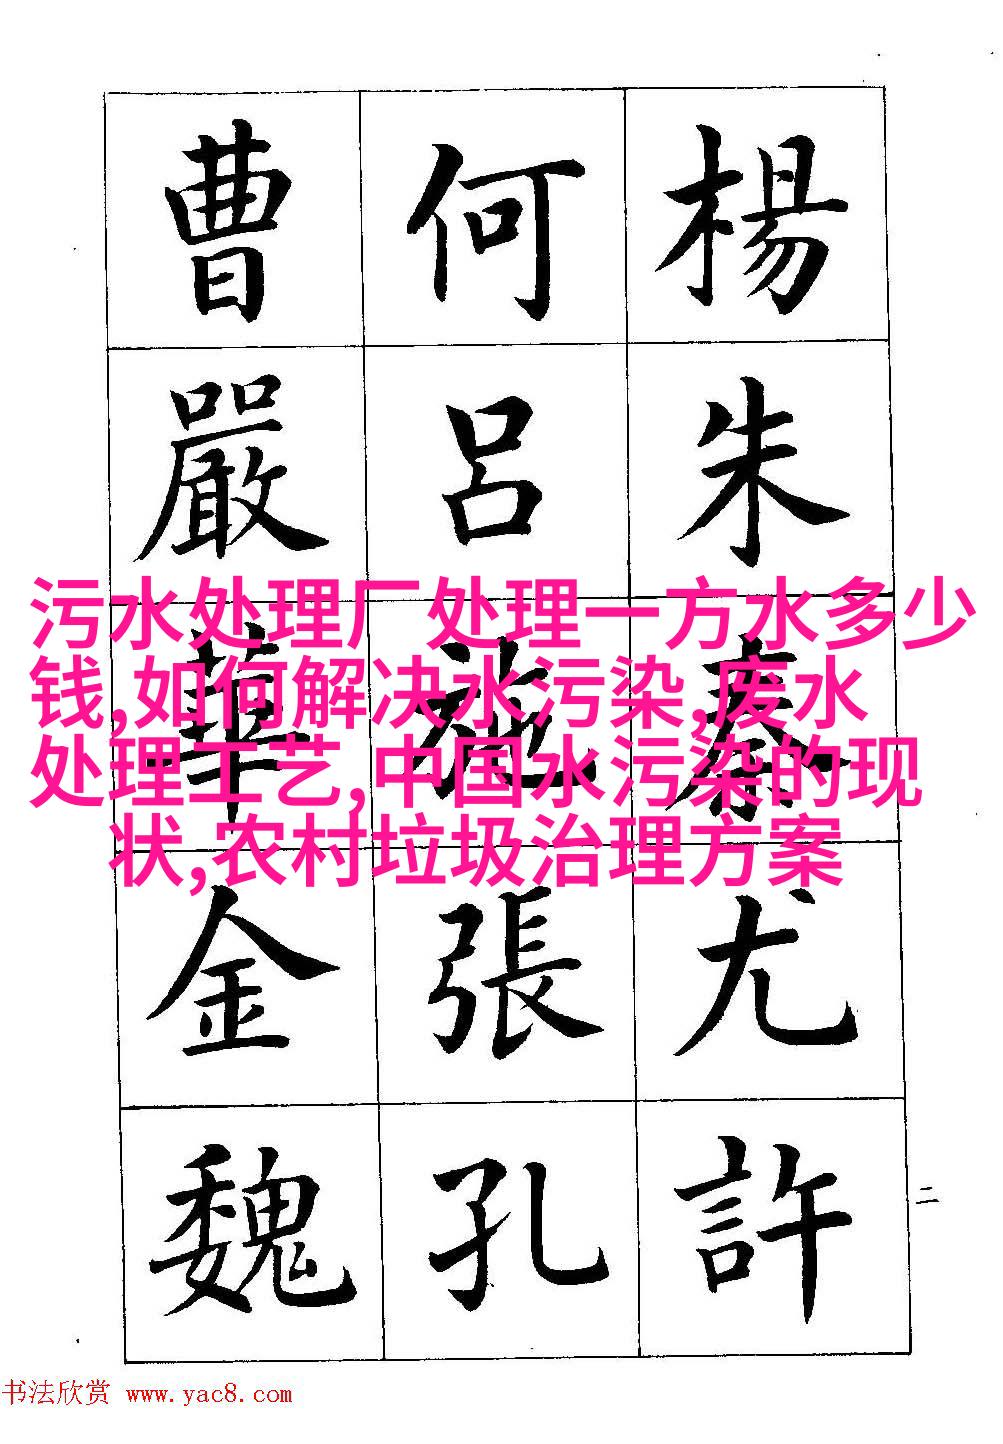 楊 朱 秦 尤 許
何 呂 施 張 孔
曹 嚴 華 金 魏
污水处理厂处理一方水多少
钱,如何解决水污染,废水
处理工艺,中国水污染的现
状,农村垃圾治理方案
二
书法欣赏 www.yac8.com